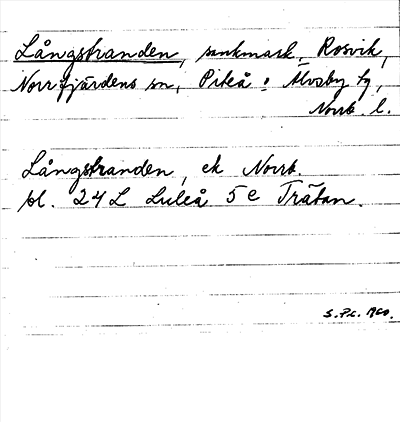 Långstranden, sankmark, Rosvik,
Norrfjärdens sn, Piteå o Älvsby tg,
Norrb. l.
Långstranden, ek Norrb.
bl. 24L Luleå 5e Trätan.